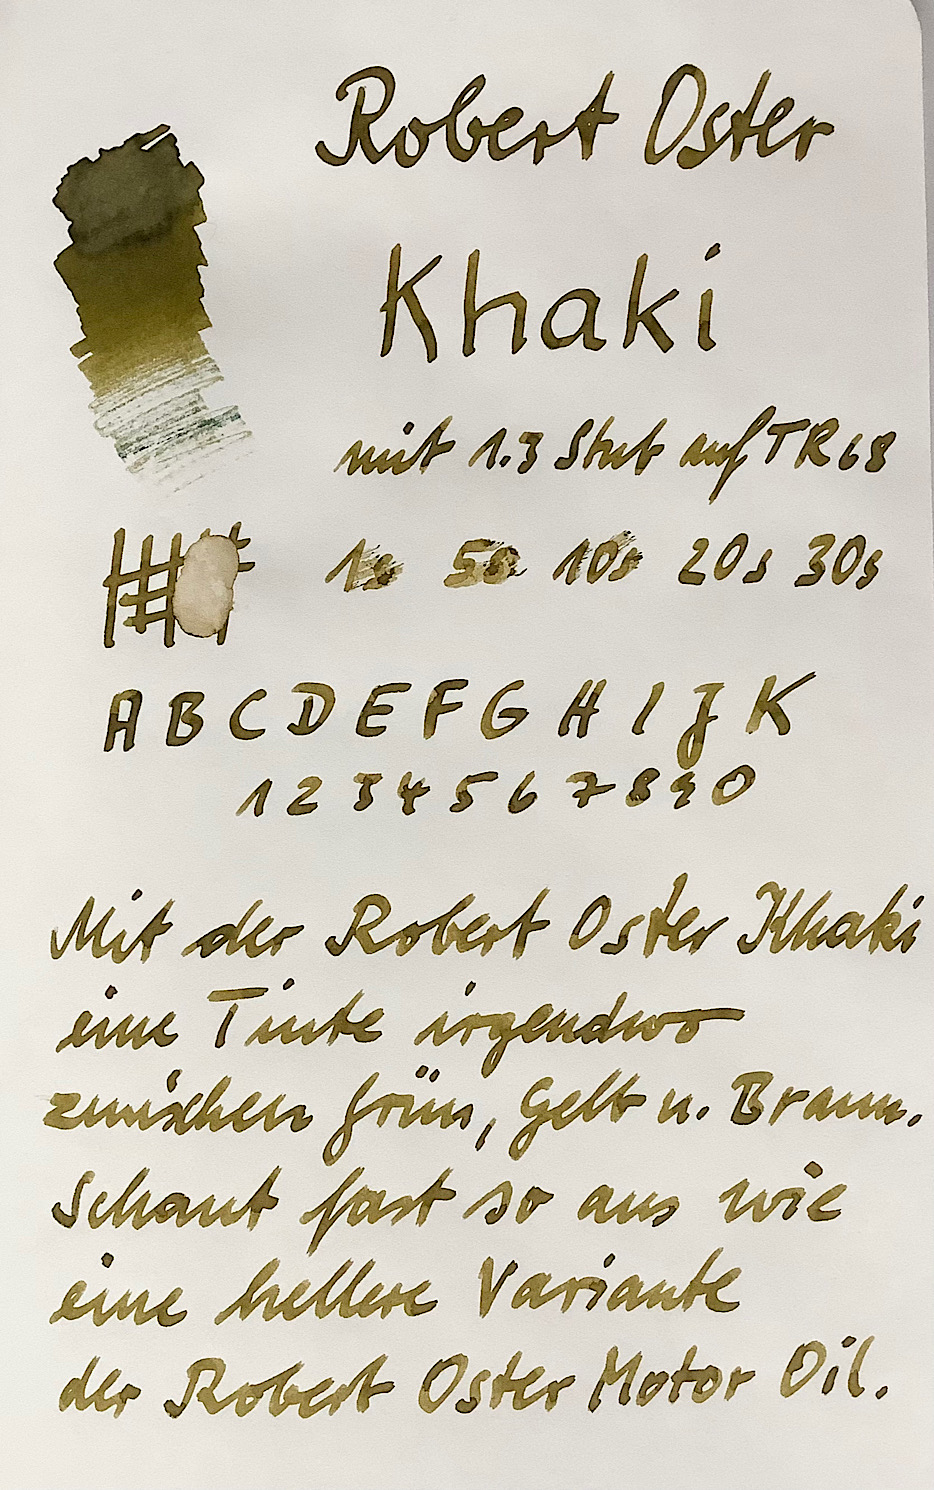 Robert Oster
Khaki
mit 1.3 Stub auf TR68
1s 5s 10s 20s 30s
A B C D E F G H I J K
1 2 3 4 5 6 7 8 9 0
Mit der Robert Oster Khaki
eine Tinte irgendwo
zwischen grün, Gelb u. Braun.
Schaut fast so aus wie
eine hellere Variante
der Robert Oster Motor Oil.